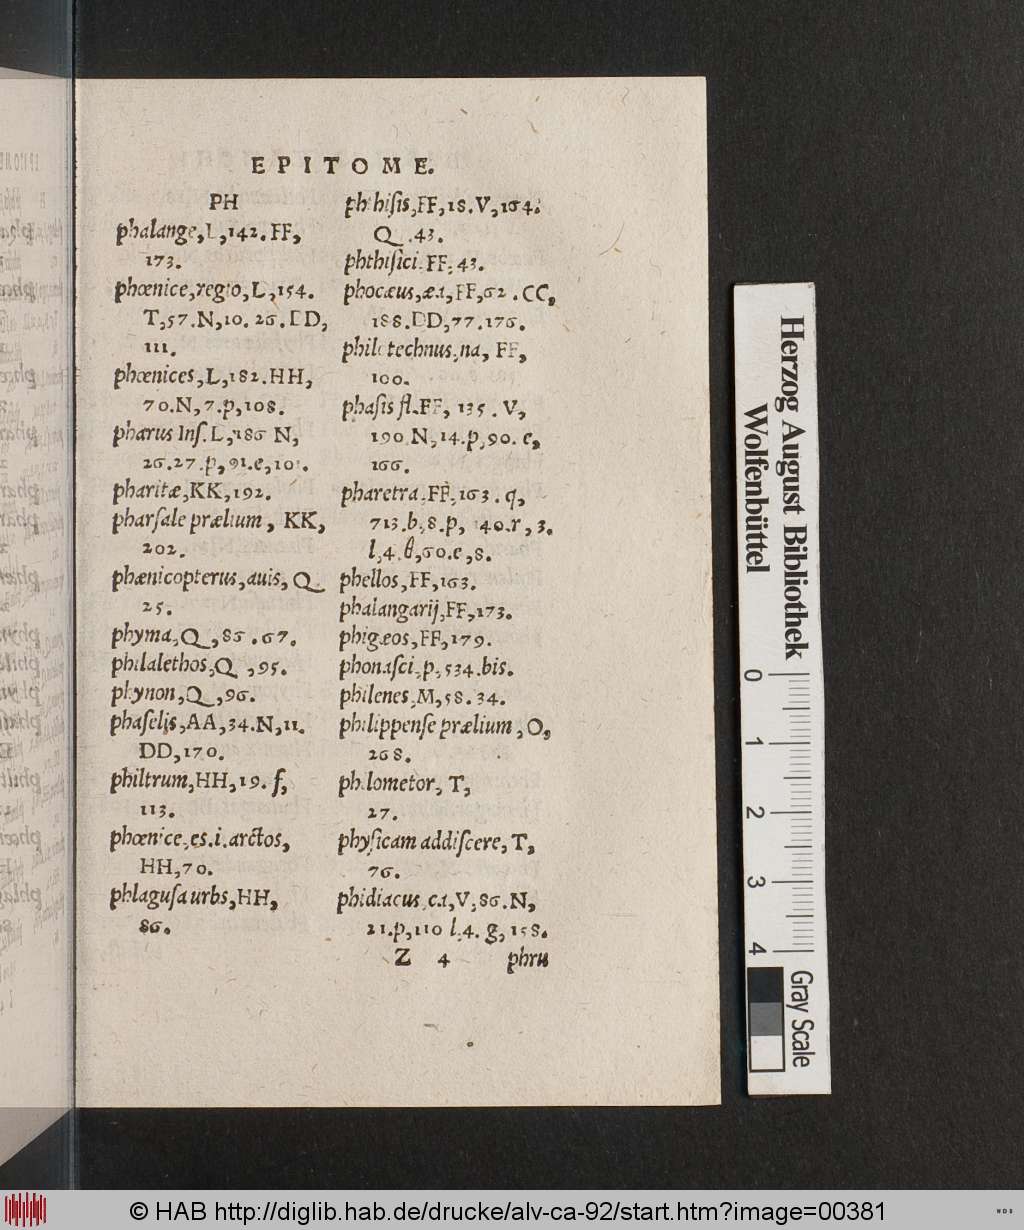 EPITOME.
PH
phalange, L, 142. FF,
173.
phœnice, regio, L, 154.
T, 57. N, 10. 26. DD,
111.
phœnices, L, 182. HH,
70. N, 7. p, 108.
pharus Inſ. L, 186 N,
26. 27. p, 91. e,
pharitæ, KK, 192.
pharſale prælium, KK,
202.
phænicopterus, auis, Q
25.
phyma, Q, 86. 67.
philalethos, Q, 95.
phynon, Q, 96.
phaſelis, AA, 34. N, 11.
DD, 170.
philtrum, HH, 19. f,
113.
phœnice, es. i. arctos,
HH, 70.
phlaguſa urbs, HH,
86.
phthiſis, FF, 18. V, 164.
Q. 43.
phthiſici. FF. 43.
phocæus, æa, FF, 62. CC,
188. DD, 77. 176.
philotechnus, na, FF,
100.
phaſis fl. FF, 135. V,
190 N, 14. p, 90. e,
166.
pharetra. FF. 163. q,
713. b, 8. p, 140. r, 3.
l, 4. θ, 60. e, 8.
phellos, FF, 163.
phalangarij, FF, 173.
phigæos, FF, 179.
phonaſci, p, 534. bis.
philenes, M, 58. 34.
philippenſe prælium, O,
268.
philometor, T,
27.
phyſicam addiſcere, T,
76.
phidiacus, ca, V, 86. N,
21. p, 110 l, 4. g, 158.
Z 4 phru
Herzog August Bibliothek
Wolfenbüttel
0 1 2 3 4
Gray Scale
© HAB http://diglib.hab.de/drucke/alv-ca-92/start.htm?image=00381